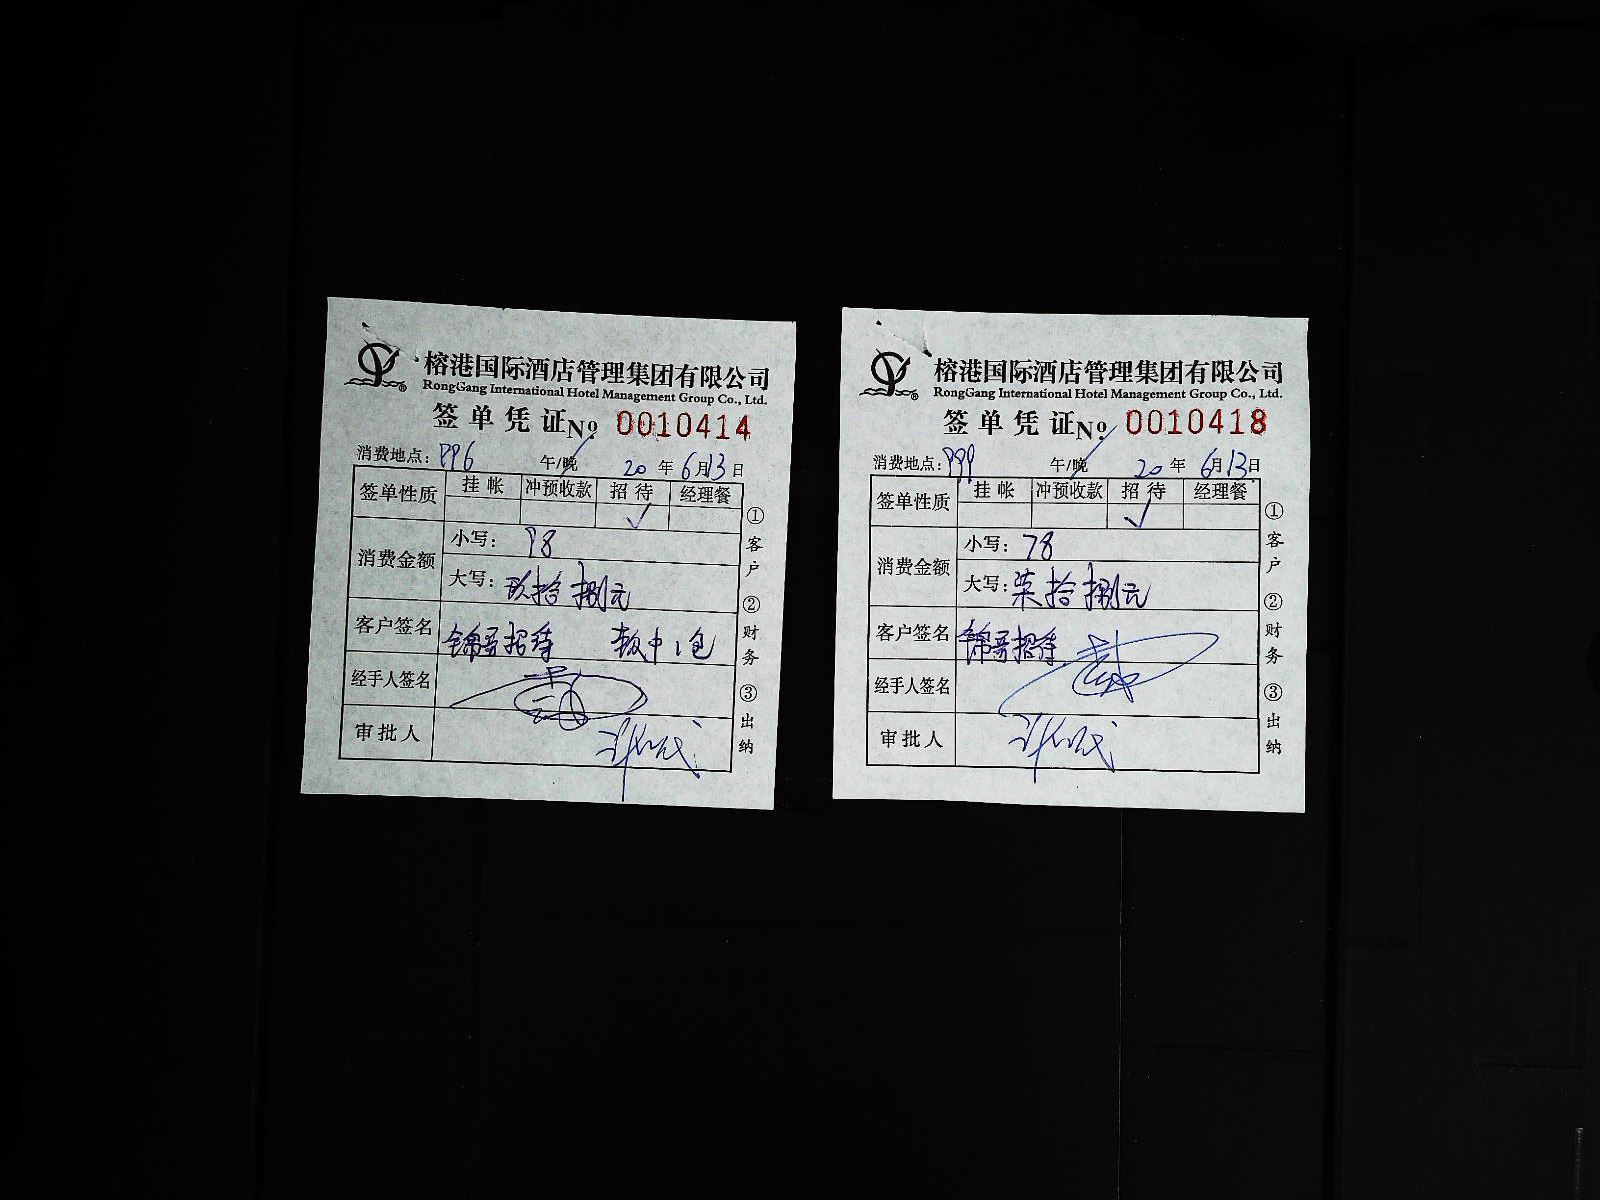 榕港国际酒店管理集团有限公司
RongGang International Hotel Management Group Co., Ltd.
签单凭证 № 0010414
消费地点: 996 午/晚 20 年 6月13日
签单性质 挂帐 冲预收款 招待 经理餐
✓
消费金额 小写: 98
大写: 玖拾捌元
客户签名 锦哥招待 软中1包
经手人签名
审批人
①客户 ②财务 ③出纳
榕港国际酒店管理集团有限公司
RongGang International Hotel Management Group Co., Ltd.
签单凭证 № 0010418
消费地点: 999 午/晚 20 年 6月13日
签单性质 挂帐 冲预收款 招待 经理餐
✓
消费金额 小写: 78
大写: 柒拾捌元
客户签名 锦哥招待
经手人签名
审批人
①客户 ②财务 ③出纳